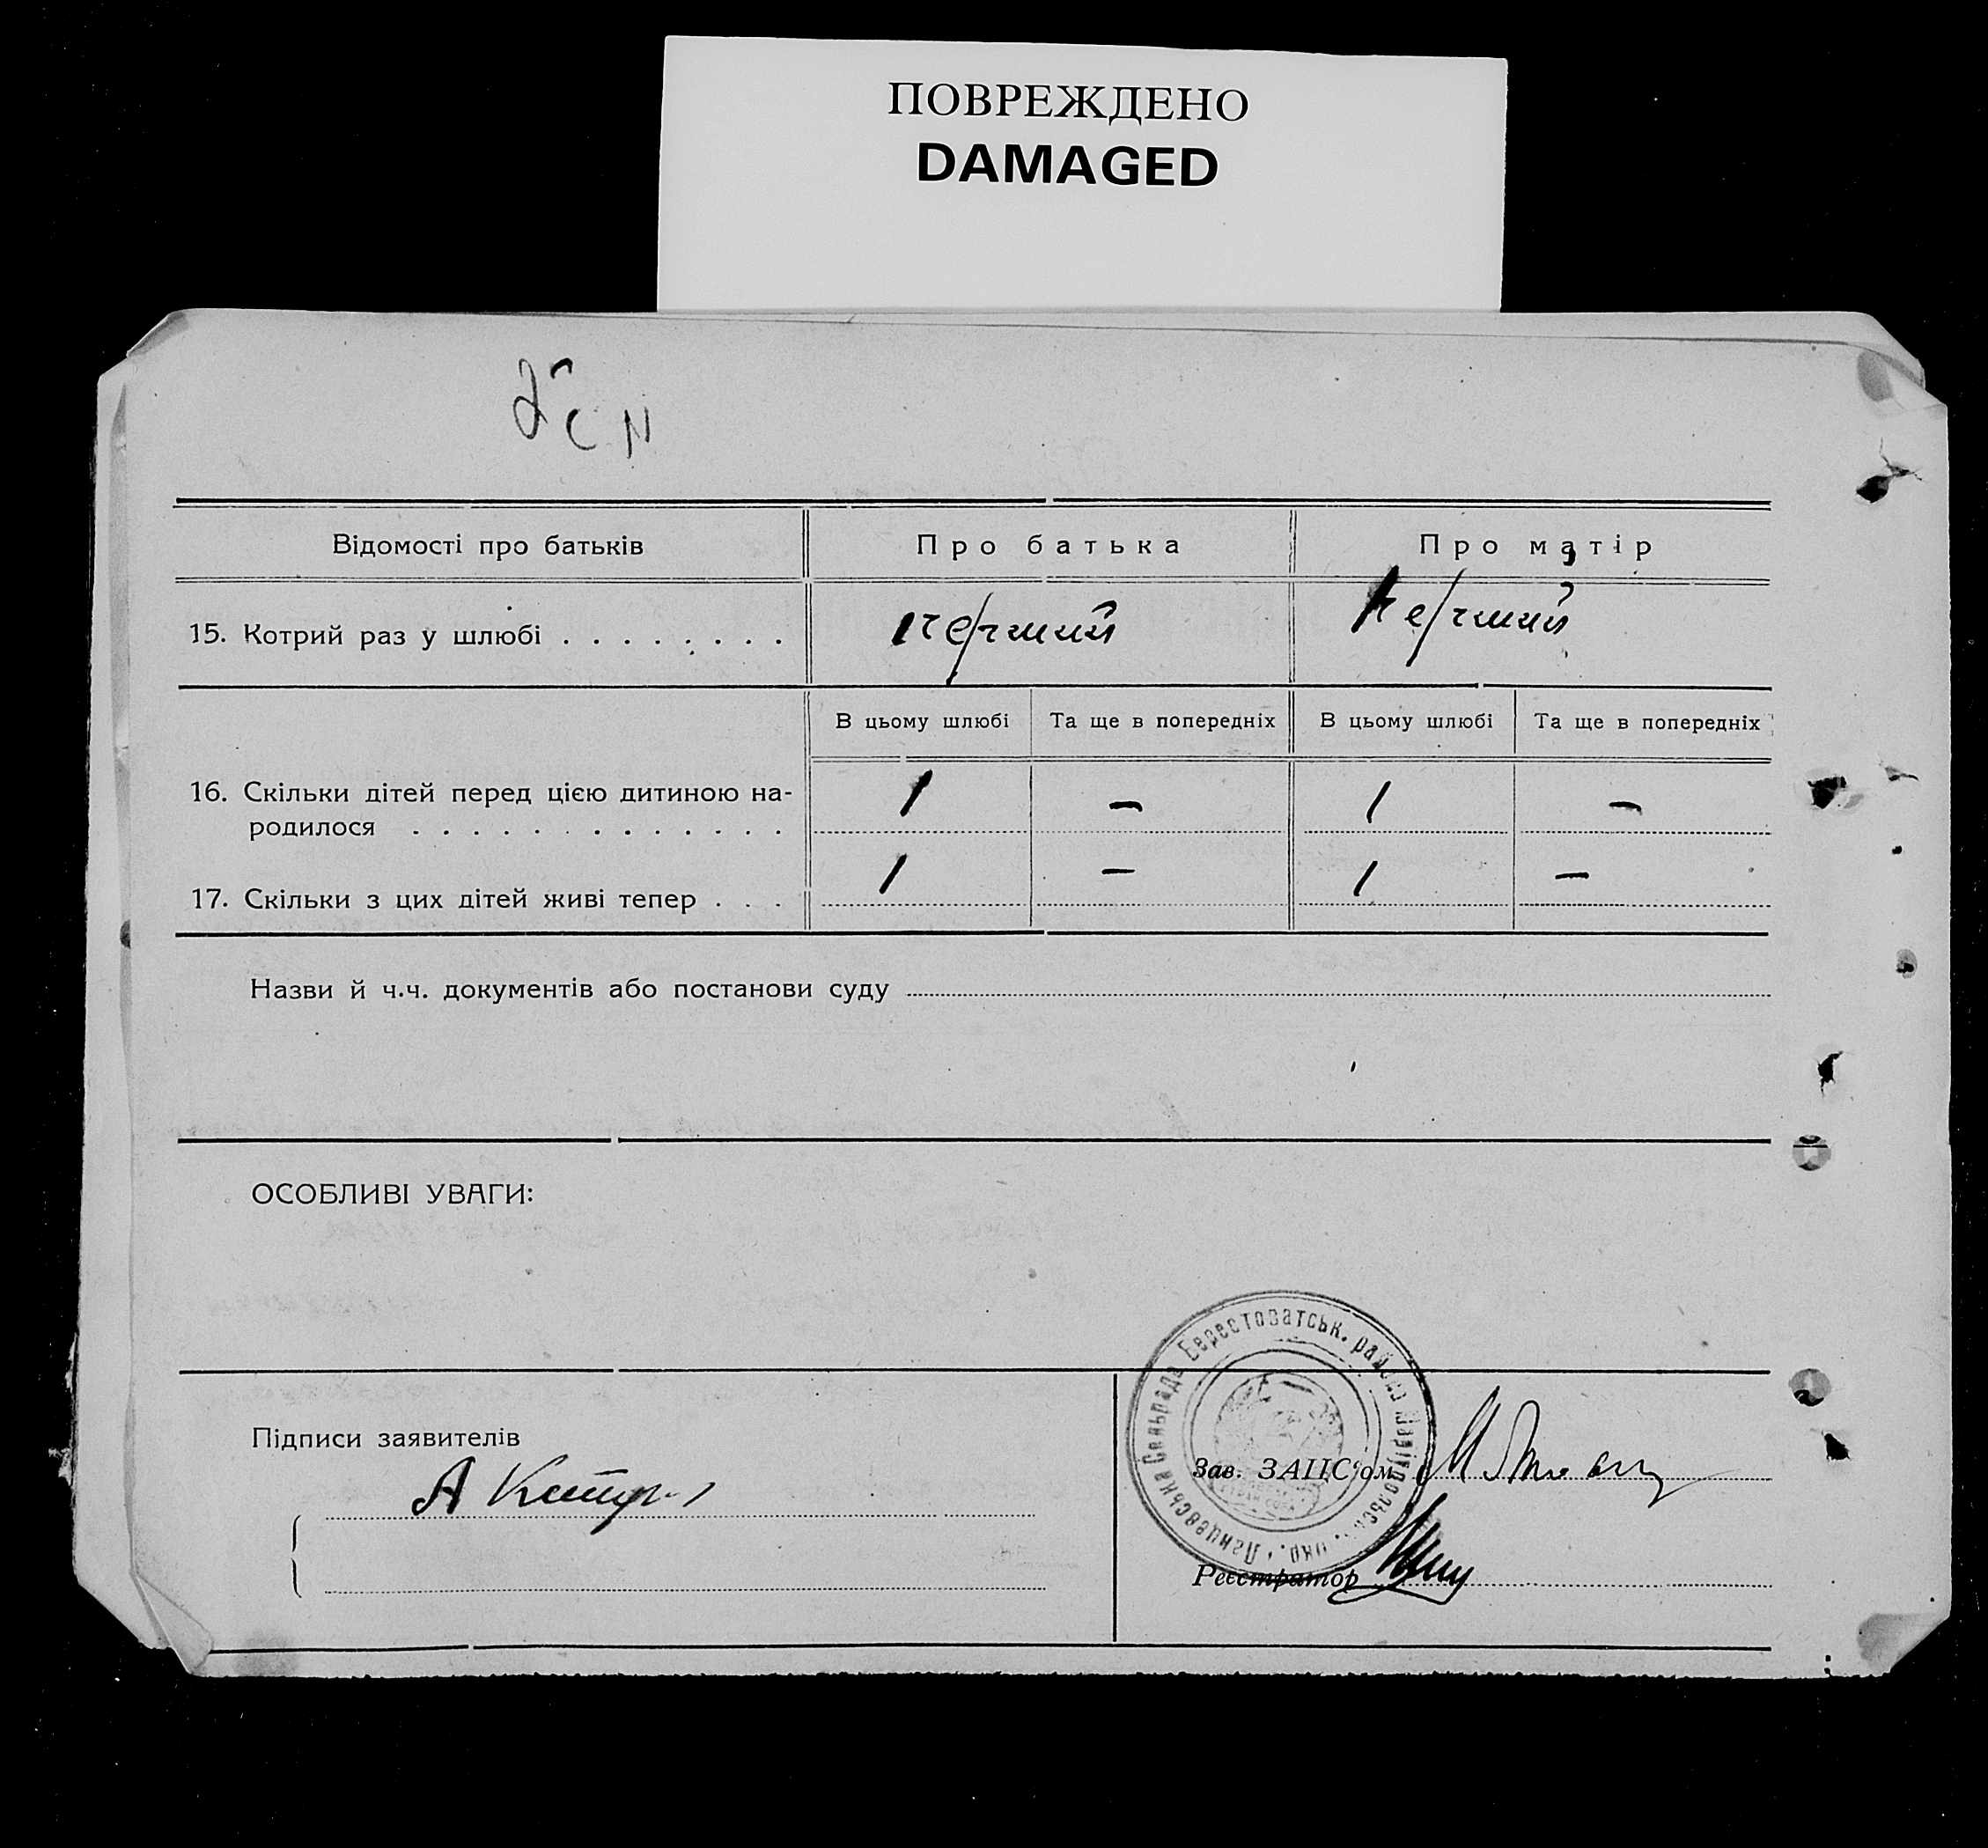 ПОВРЕЖДЕНО
DAMAGED
Відомості про батьків
Про батька
Про матір
15. Котрий раз у шлюбі . . . . . . . .
перший
перший
В цьому шлюбі
Та ще в попередніх
В цьому шлюбі
Та ще в попередніх
16. Скільки дітей перед цією дитиною на-
родилося . . . . . . . . . . . . .
1 — 1 —
17. Скільки з цих дітей живі тепер . . .
1 — 1 —
Назви й ч.ч. документів або постанови суду
ОСОБЛИВІ УВАГИ:
Підписи заявителів
А
Зав. ЗАГС'ом
Реєстратор
Ланцевська Сельрада Берестоватськ. району Маріупольськ. окр.